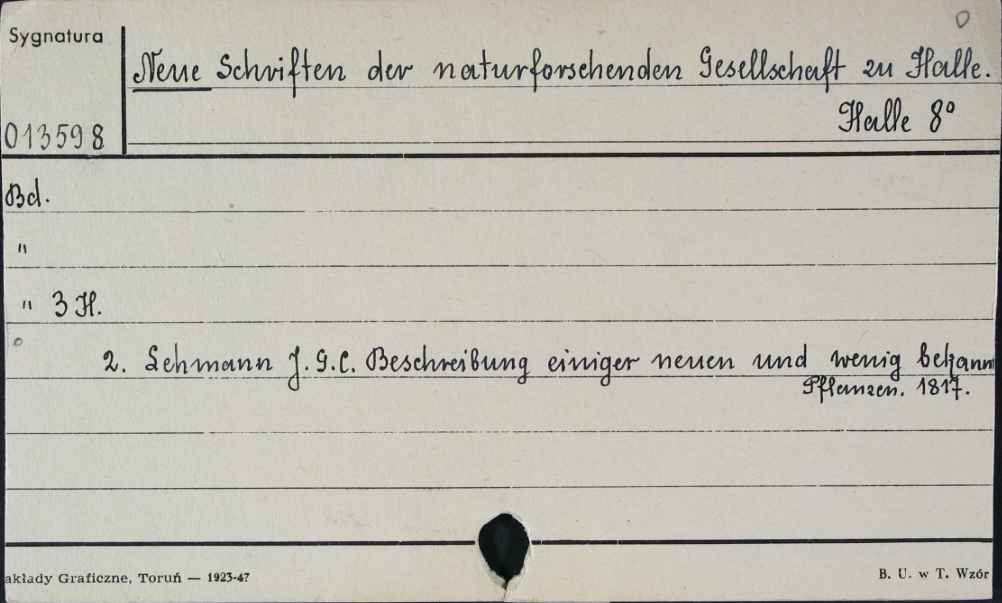 0
Sygnatura
Neue Schriften der naturforschenden Gesellschaft zu Halle.
Halle 8°
013598
Bd.
"
" 3 H.
2. Lehmann J. G. C. Beschreibung einiger neuen und wenig bekann
Pflanzen. 1817.
akłady Graficzne, Toruń — 1923-47
B. U. w T. Wzór